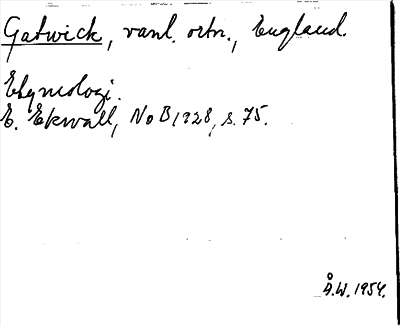 Gatwick, vanl. ortn., England.
Etymologi.
E. Ekwall, NoB 1928, s. 75.
Å.W. 1954.